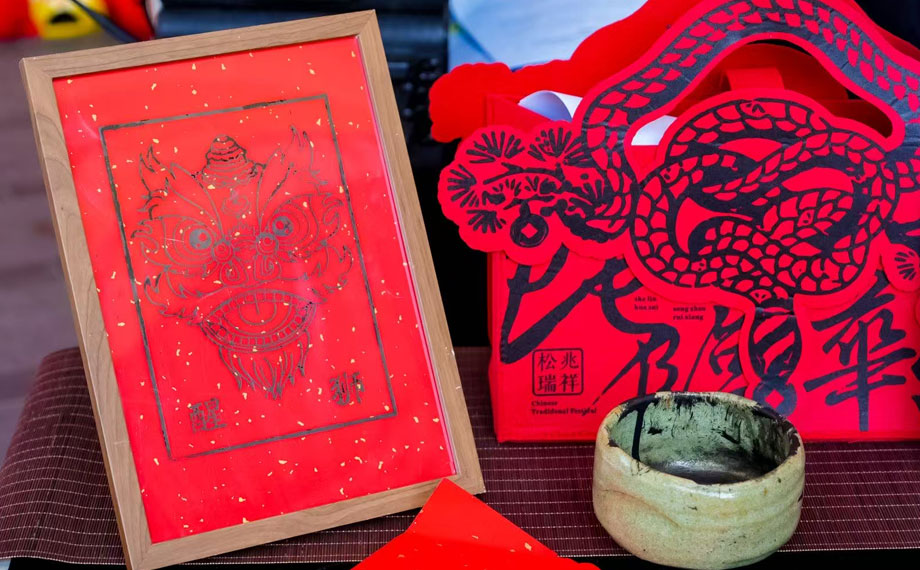 醒 狮
華
she lin
hua sui
song zhao
rui xiang
松兆
瑞祥
Chinese
Traditional Festival